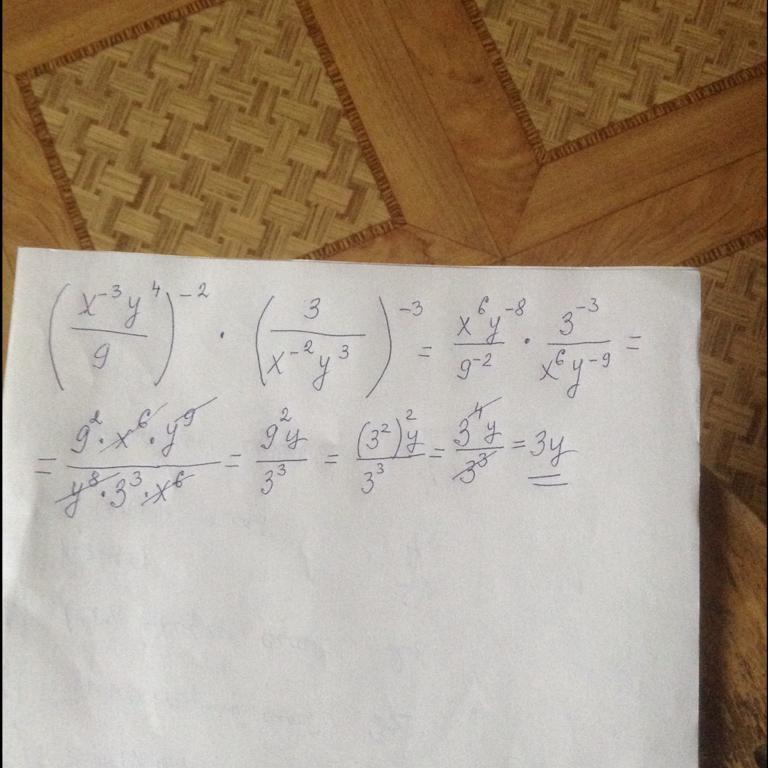 (x⁻³y⁴/9)⁻² · (3/x⁻²y³)⁻³ = x⁶y⁻⁸/9⁻² · 3⁻³/x⁶y⁻⁹ =
= 9²·x⁶·y⁹/y⁸·3³·x⁶ = 9²y/3³ = (3²)²y/3³ = 3⁴y/3³ = 3y